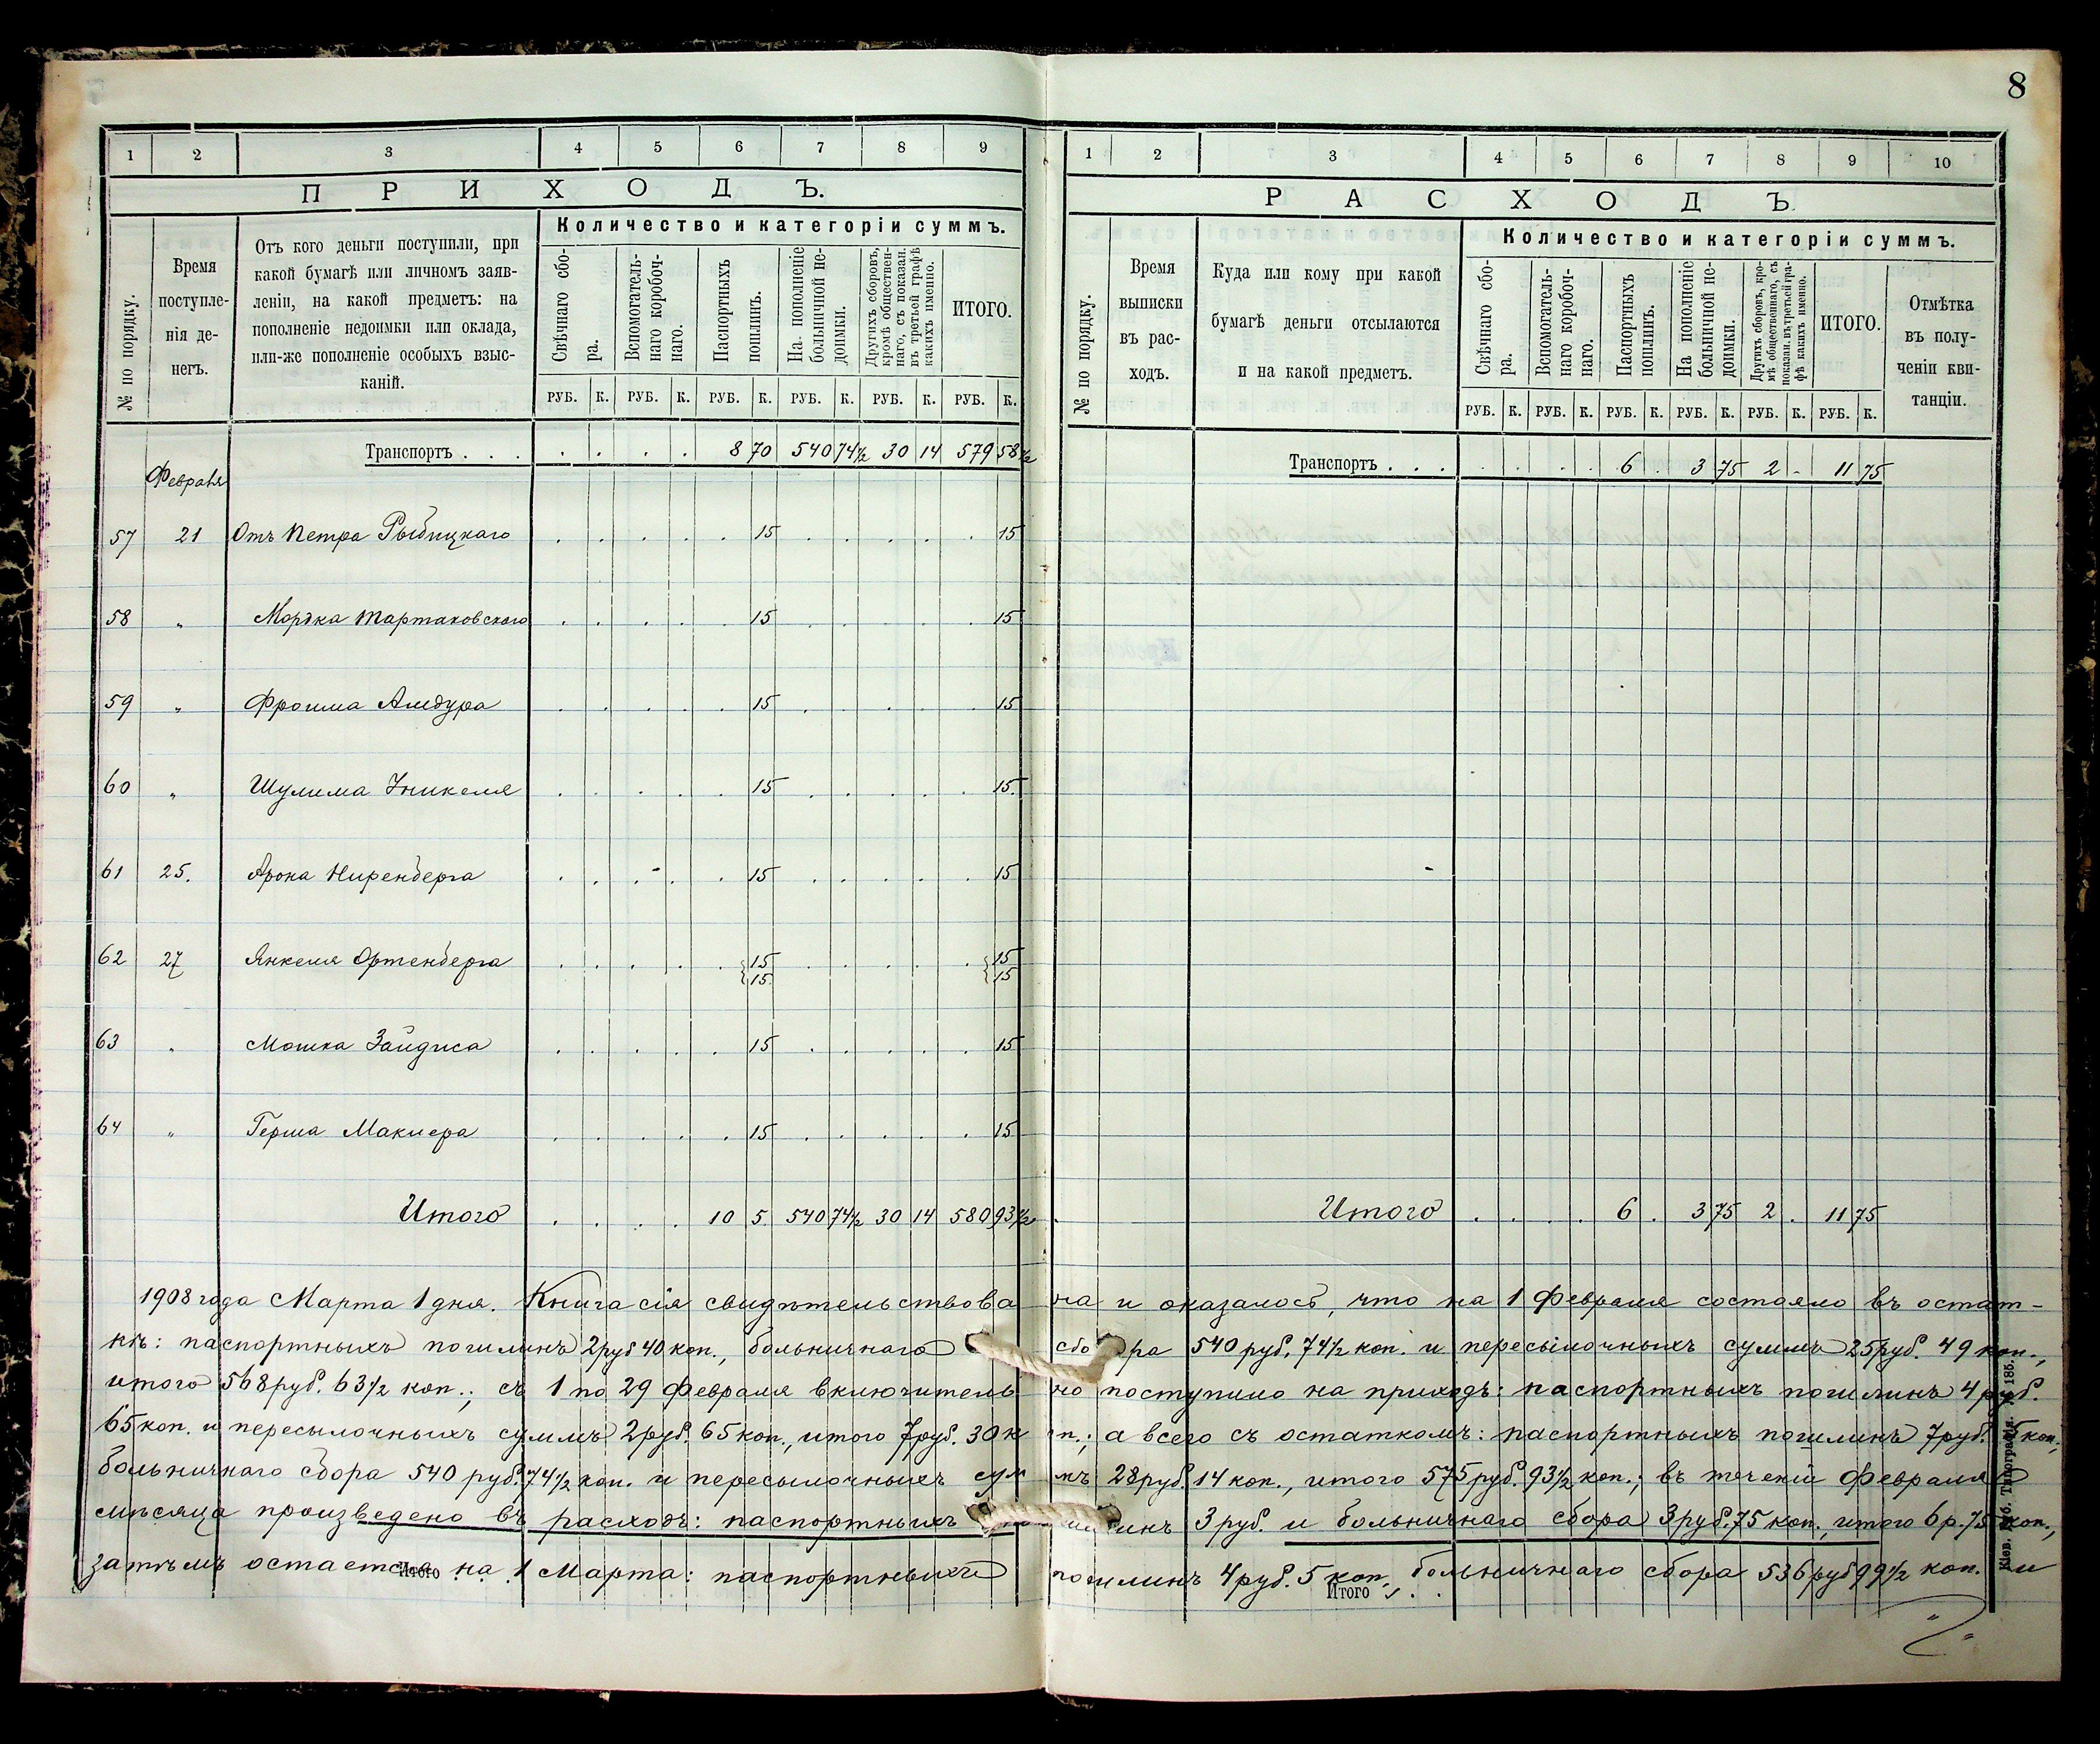 8
1 2 3 4 5 6 7 8 9
ПРИХОДЪ.
№ по порядку.
Время поступленія денегъ.
Отъ кого деньги поступили, при
какой бумагѣ или личномъ заяв-
леніи, на какой предметъ: на
пополненіе недоимки или оклада,
или-же пополненіе особыхъ взыс-
каній.
Количество и категоріи суммъ.
Свѣчнаго сбо-
ра.
Вспомогатель-
наго коробоч-
наго.
Паспортныхъ
пошлинъ.
На пополненіе
больничной не-
доимки.
Другихъ сборовъ,
кромѣ обществен-
наго, съ показан.
въ третьей графѣ
какихъ именно.
ИТОГО.
РУБ. К. РУБ. К. РУБ. К. РУБ. К. РУБ. К. РУБ. К.
Транспортъ . . . . . . . 8 70 540 74½ 30 14 579 58½
Февраля
57 21 Отъ Петра Рыбицкаго . . . . . 15 . . . . . 15
58 " Мордка Тартаковскаго . . . . . 15 . . . . . 15
59 " Фроима Амдура . . . . . 15 . . . . . 15
60 " Шулима Уникеля . . . . . 15 . . . . . 15.
61 25. Арона Ниренберга . . . . . 15 . . . . . 15
62 27 Янкеля Ортенберга . . . . . {15 . . . . . {15
15. 15
63 " Мошка Зайдиса . . . . . 15 . . . . . 15
64 " Герша Макмера . . . . . 15 . . . . . 15
Итого . . . . 10 5 540 74½ 30 14 580 93½
1 2 3 4 5 6 7 8 9 10
РАСХОДЪ
№ по порядку.
Время
выписки
въ рас-
ходъ.
Куда или кому при какой
бумагѣ деньги отсылаются
и на какой предметъ.
Количество и категоріи суммъ.
Свѣчнаго сбо-
ра.
Вспомогатель-
наго коробоч-
наго.
Паспортныхъ
пошлинъ.
На пополненіе
больничной не-
доимки.
Другихъ сборовъ, кро-
мѣ общественнаго, съ
показан. въ третьей гра-
фѣ какихъ именно.
ИТОГО.
Отмѣтка
въ полу-
ченіи кви-
танціи.
РУБ. К. РУБ. К. РУБ. К. РУБ. К. РУБ. К. РУБ. К.
Транспортъ . . . . . . . 6 . 3 75 2 - 11 75
Итого . . . . 6 . 3 75 2 . 11 75
1908 года Марта 1 дня. Книга сія свидѣтельствована и оказалось, что на 1 Февраля состояло въ остат-
кѣ: паспортныхъ пошлинъ 2 руб 40 коп., больничнаго сбора 540 руб. 74½ коп. и пересылочныхъ суммъ 25 руб. 49 коп.,
итого 568 руб. 63½ коп.; съ 1 по 29 Февраля включительно поступило на приходъ: паспортныхъ пошлинъ 4 руб.
65 коп. и пересылочныхъ суммъ 2 руб. 65 коп., итого 7 руб. 30 коп.; а всего съ остаткомъ: паспортныхъ пошлинъ 7 руб. 5 коп.,
больничнаго сбора 540 руб. 74½ коп. и пересылочныхъ суммъ 28 руб. 14 коп., итого 575 руб. 93½ коп.; въ теченіи Февраля
мѣсяца произведено въ расходъ: паспортныхъ пошлинъ 3 руб. и больничнаго сбора 3 руб. 75 коп., итого 6 р. 75 коп.,
затѣмъ остается на 1 Марта: паспортныхъ пошлинъ 4 руб. 5 коп., больничнаго сбора 536 руб 99½ коп. и
Итого . . .
Итого . . .
Кіев. Губ. Типографія. № 185.